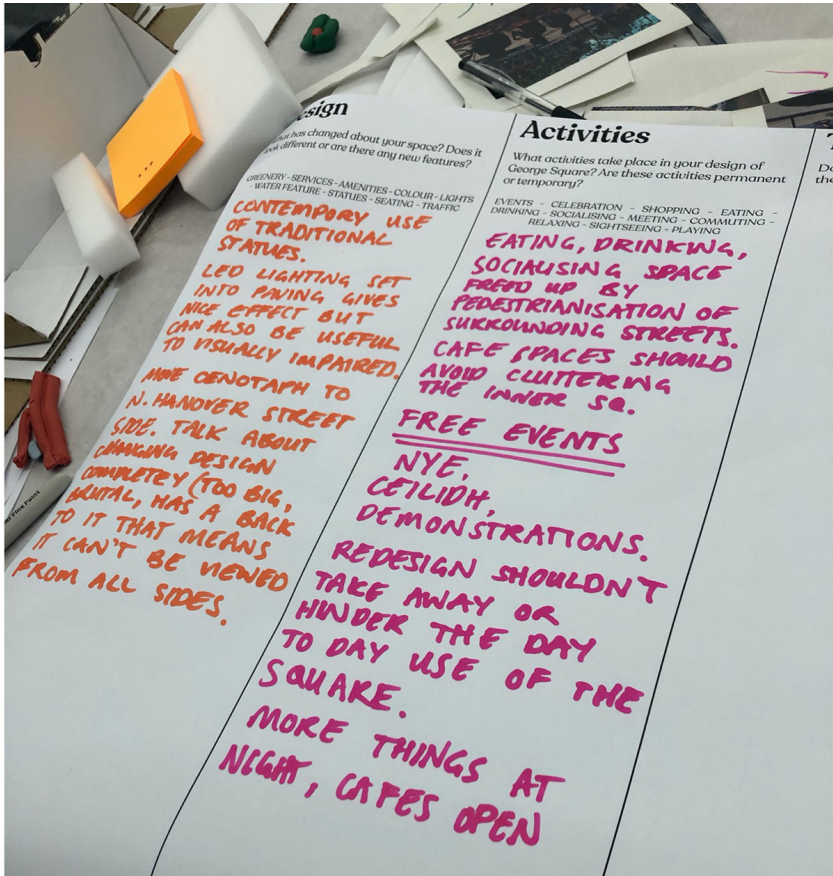 sign
has changed about your space? Does it
look different or are there any new features?
GREENERY - SERVICES - AMENITIES - COLOUR - LIGHTS
- WATER FEATURE - STATUES - SEATING - TRAFFIC
CONTEMPORY USE
OF TRADITIONAL
STATUES.
LED LIGHTING SET
INTO PAVING GIVES
NICE EFFECT BUT
CAN ALSO BE USEFUL
TO VISUALLY IMPAIRED.
MOVE CENOTAPH TO
N. HANOVER STREET
SIDE. TALK ABOUT
CHANGING DESIGN
COMPLETELY (TOO BIG,
BRUTAL, HAS A BACK
TO IT THAT MEANS
IT CAN'T BE VIEWED
FROM ALL SIDES.
Activities
What activities take place in your design of
George Square? Are these activities permanent
or temporary?
EVENTS - CELEBRATION - SHOPPING - EATING -
DRINKING - SOCIALISING - MEETING - COMMUTING -
RELAXING - SIGHTSEEING - PLAYING
EATING, DRINKING,
SOCIALISING SPACE
FREED UP BY
PEDESTRIANISATION OF
SURROUNDING STREETS.
CAFE SPACES SHOULD
AVOID CLUTTERING
THE INNER SQ.
FREE EVENTS
NYE,
CEILIDH,
DEMONSTRATIONS.
REDESIGN SHOULDN'T
TAKE AWAY OR
HINDER THE DAY
TO DAY USE OF THE
SQUARE.
MORE THINGS AT
NIGHT, CAFES OPEN
Do
the